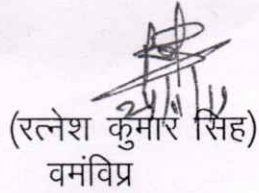 (रत्नेश कुमार सिंह)
वमंविप्र